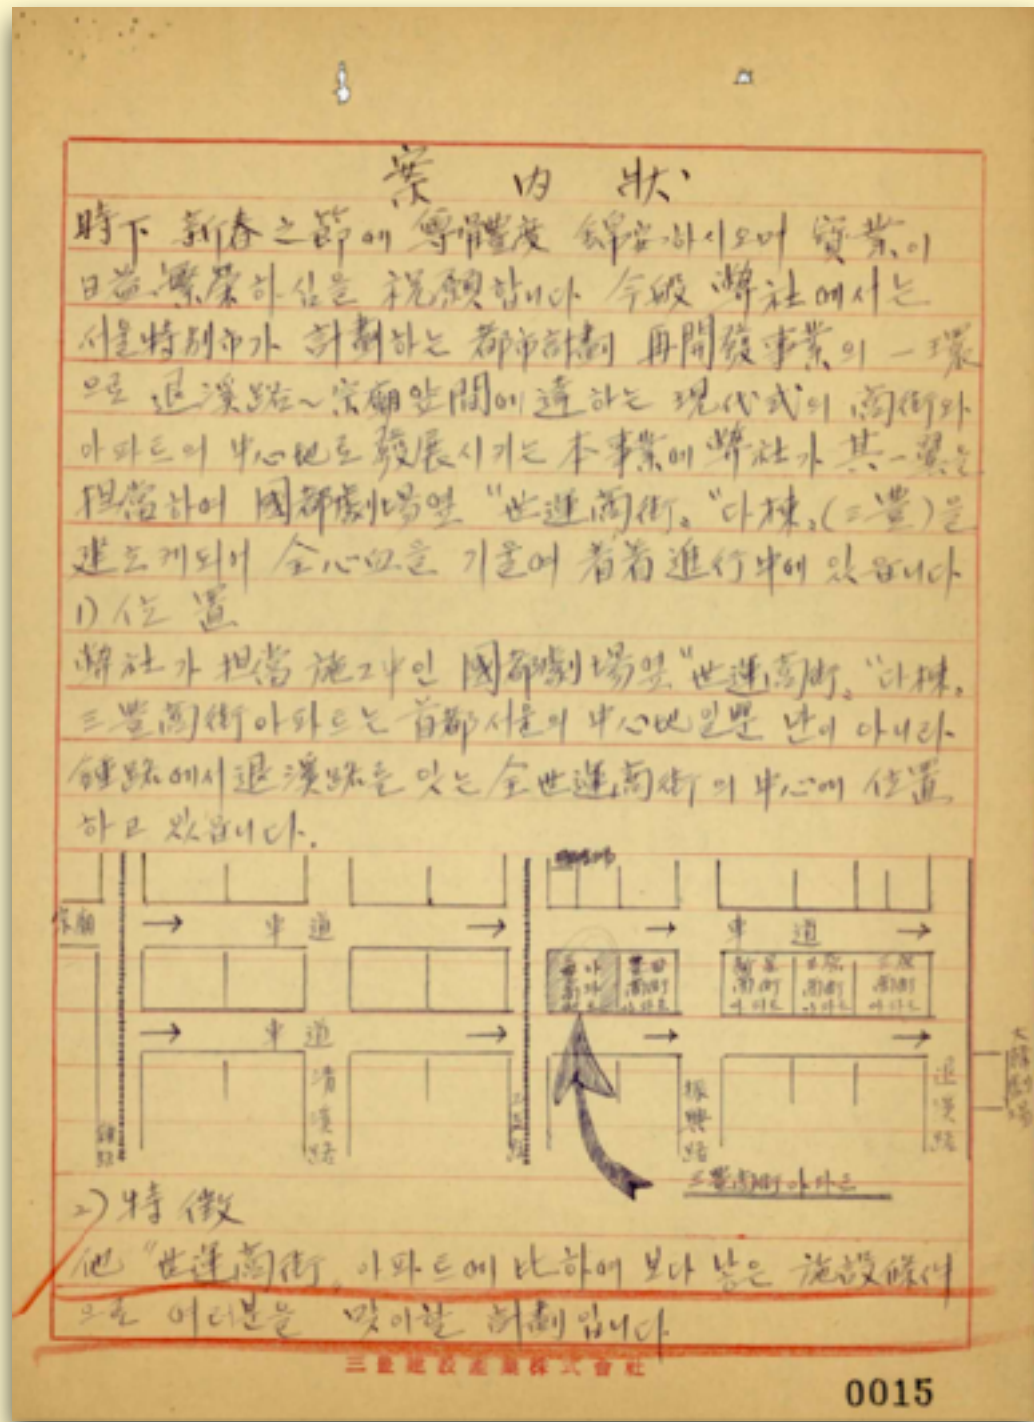 案內狀
時下 新春之節에 尊體豊度 錦安하시오며 寶業이
日益繁榮하심을 祝願합니다 今般 弊社에서는
서울特別市가 計劃하는 都市計劃 再開發事業의 一環
으로 退溪路~宗廟앞間에 達하는 現代式의 商街와
아파트의 中心地로 發展시키는 本事業에 弊社가 其一翼을
担當하여 國都劇場옆 "世運商街" "다棟"(三豊)을
建立케되어 全心血을 기울여 着着 進行中에 있읍니다
1) 位置
弊社가 担當 施工中인 國都劇場옆 "世運商街" "다棟"
三豊商街아파트는 首都서울의 中心地일뿐 만이 아니라
鍾路에서 退溪路를 잇는 全世運商街의 中心에 位置
하고 있읍니다.
宗廟 → 車道 → → 車道 →
豊田商街아파트
三豊商街아파트
→ 車道 → → →
鍾路
淸溪路
乙支路
振興路
退溪路
大韓劇場
三豊商街아파트
2) 特徵
他 "世運商街" 아파트에 比하여 보다 낳은 施設條件
으로 여러분을 맞이할 計劃입니다
三豊建設産業株式會社
0015